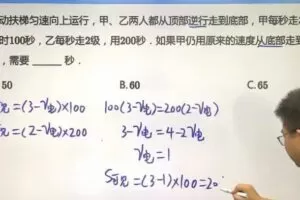 动扶梯匀速向上运行，甲、乙两人都从顶部逆行走到底部，甲每秒走
时100秒，乙每秒走2级，用200秒．如果甲仍用原来的速度从底部走到
，需要 ______ 秒．
50
B. 60
C. 65
=(3-V电)×100
=(2-V电)×200
100(3-V电)=200(2-V电)
3-V电=4-2V电
V电=1
S可见=(3-1)×100=20